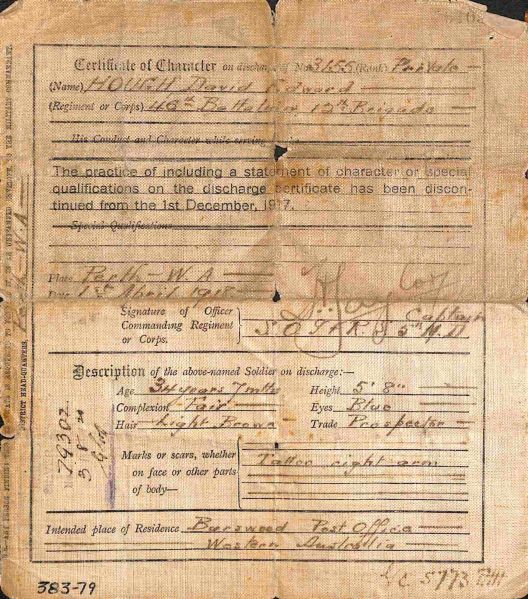 Certificate of Character on discharge of No. 3155 (Rank) Private
(Name) HOUGH David Edward
(Regiment or Corps) 48th Battalion, 12th Brigade
His Conduct and Character while serving
The practice of including a statement of character or special
qualifications on the discharge certificate has been discon-
tinued from the 1st December, 1917.
Special Qualifications
Place Perth W A
Date 1st April 1918
Signature of Officer
Commanding Regiment
or Corps.
Captain
S.O.I.&R.S 5th M.D
Description of the above-named Soldier on discharge:—
Age 34 years 7 mths Height 5' 8"
Complexion Fair Eyes Blue
Hair Light Brown Trade Prospector
Marks or scars, whether
on face or other parts
of body—
Tattoo right arm
Intended place of Residence Burswood Post Office
Western Australia
Perth W.A
DISTRICT HEAD-QUARTERS,
79302
3 8 20
383-79
5773